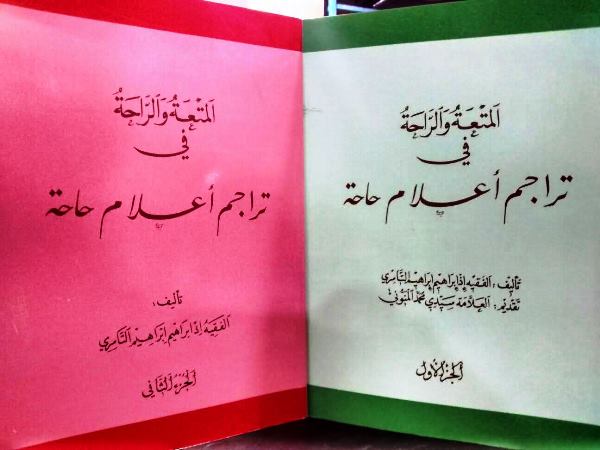 المتعة والراحة
في
تراجم أعلام حاحة
تأليف: الفقيه إذ ابراهيم إبراهيم التامري
تقديم: العلامة سيدي محمد المنوني
الجزء الأول
المتعة والراحة
في
تراجم أعلام حاحة
تأليف:
الفقيه إذ ابراهيم إبراهيم التامري
الجزء الثاني